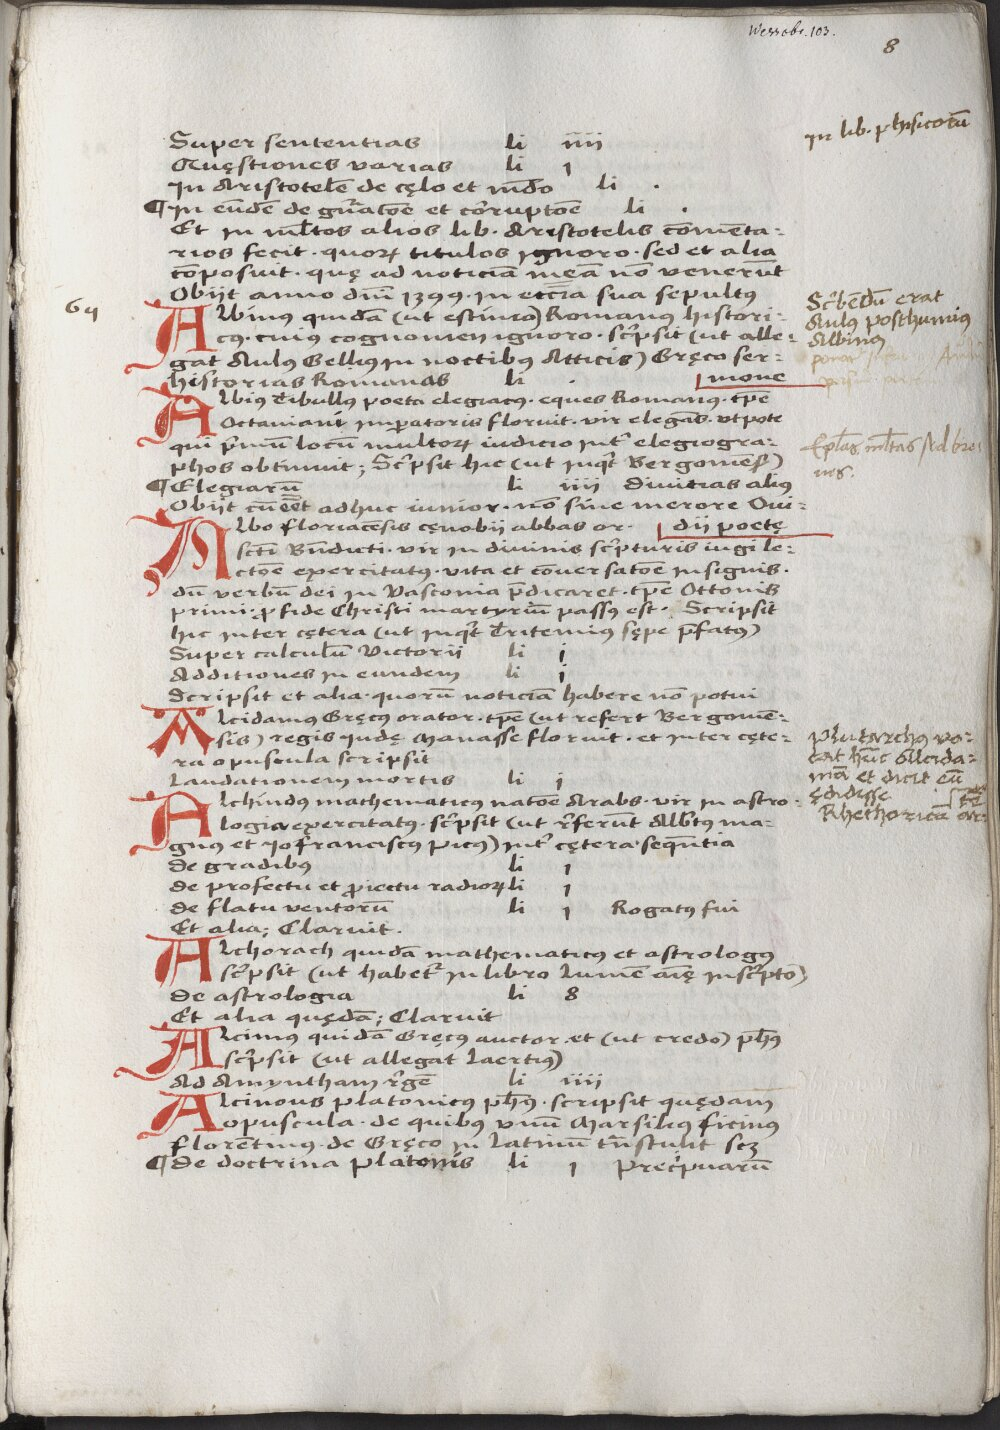 Wessobr. 103.
8
Super sententias li iiii
Quęstiones varias li 1
In Aristotelē de cęlo et mūdo li .
¶ In eūdē de gn̄atōe et cōruptōe li .
Et in ml̄tos alios lib. Aristotelis cōmenta=
rios fecit. quoꝝ titulos ignoro. sed et alia
cōposuit. quę ad noticiā meā nō venerūt
Obijt anno dn̄i 1399. in ecc̄ia sua sepultꝰ
In lib. phisicorū
64
Albinus quidā (ut estimo) Romanus histori=
cꝰ. cuiꝰ cognomen ignoro. scͥpsit (ut alle=
gat Aulus Gelliꝰ in noctibꝰ Atticis) Gręco ser=
historias Romanas li . mone
Scͥbēdū erat
Aulus posthumiꝰ
Albinꝰ
Albius Tibullꝰ poeta elegiacꝰ. eques Romanꝰ. tp̄e
Octauiani imꝑatoris floruit. vir elegās. utpote
qui pͥmū locū multoꝝ iudicio intᷣ elegiogra=
phos obtinuit; Scͥpsit hic (ut inqͥt Bergomēs)
¶ Elegiarū li iiii diuitias aliꝰ
Obijt cū eēt adhuc iunior. nō sine merore Oui=
dij poetę
Ep̄las ml̄tas Ad bre
ues.
Albo floriacēsis cęnobij abbas or.
scti Bn̄dicti. vir in diuinis scͥpturis iugi le=
ctōe exercitatꝰ. vita et cōuersatōe insignis.
dū verbū dei in Vasconia p̄dicaret. tp̄e Ottonis
primi. ꝓ fide Christi martyriū passꝰ est. Scripsit
hic inter cętera (ut inqͥt Tritemiꝰ sępe p̄fatꝰ)
Super calculū Victorij li i
Additiones in eundem li i
Scripsit et alia. quorū noticiā habere nō potui
Alcidamus Gręcꝰ orator. tp̄e (ut refert Bergomē=
sis) regis Iudę Manasse floruit. et inter cęte=
ra opuscula scripsit
Laudationem mortis li 1
Plutarchꝰ vo=
cat hūc Alcida=
mā et dicit eū
ędidisse
Rhethoricā ar=
tē
Alchindus mathematicꝰ natōe Arabs. vir in astro
logia exercitatꝰ. scͥpsit (ut rͤferūt Alb̄tꝰ ma=
gnꝰ et Io franciscꝰ Picꝰ) intᷣ cętera seqn̄tia
de gradibꝰ li 1
de profectu et ꝓiectu radioꝝ li 1
de flatu ventorū li 1 Rogatꝰ fui
Et alia; Claruit.
Alchorach quidā mathematicꝰ et astrologꝰ
scͥpsit (ut habetᷣ in libro Lumē aīę inscͥpto)
de astrologia li 8
Et alia quędā; Claruit
Alcimus quidā Gręcꝰ auctor. et (ut credo) ph̄ꝰ
scͥpsit (ut allegat Laertiꝰ)
Ad Amyntham rͤgē li iiii
Alcinous platonicꝰ ph̄ꝰ. scripsit quędam
opuscula. de quibꝰ vnū Marsiliꝰ ficinꝰ
florētinꝰ. de Gręco in Latinū tn̄stulit scꝫ
¶ De doctrina Platonis li 1 precͥpuarū